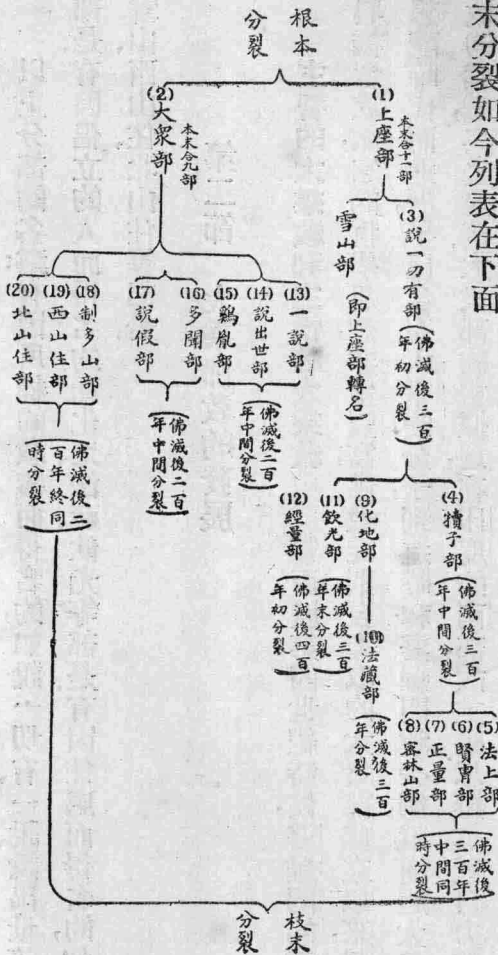 末分裂如今列表在下面
根本
分裂
(1)
上座部
本末合十一部
(3) 說一切有部
(佛滅後三百
年初分裂)
雪山部
(即上座部轉名)
(4) 犢子部
(佛滅後三百
年中間分裂)
(5) 法上部
(6) 賢冑部
(7) 正量部
(8) 密林山部
(佛滅後
三百年
中間同
時分裂)
(9) 化地部
(10) 法藏部
(佛滅後三百
年分裂)
(11) 飲光部
(佛滅後三百
年末分裂)
(12) 經量部
(佛滅後四百
年初分裂)
(2)
大衆部
本末合九部
(13) 一說部
(14) 說出世部
(15) 鷄胤部
(佛滅後二百
年中間分裂)
(16) 多聞部
(17) 說假部
(佛滅後二百
年中間分裂)
(18) 制多山部
(19) 西山住部
(20) 北山住部
(佛滅後二
百年終同
時分裂)
枝末
分裂